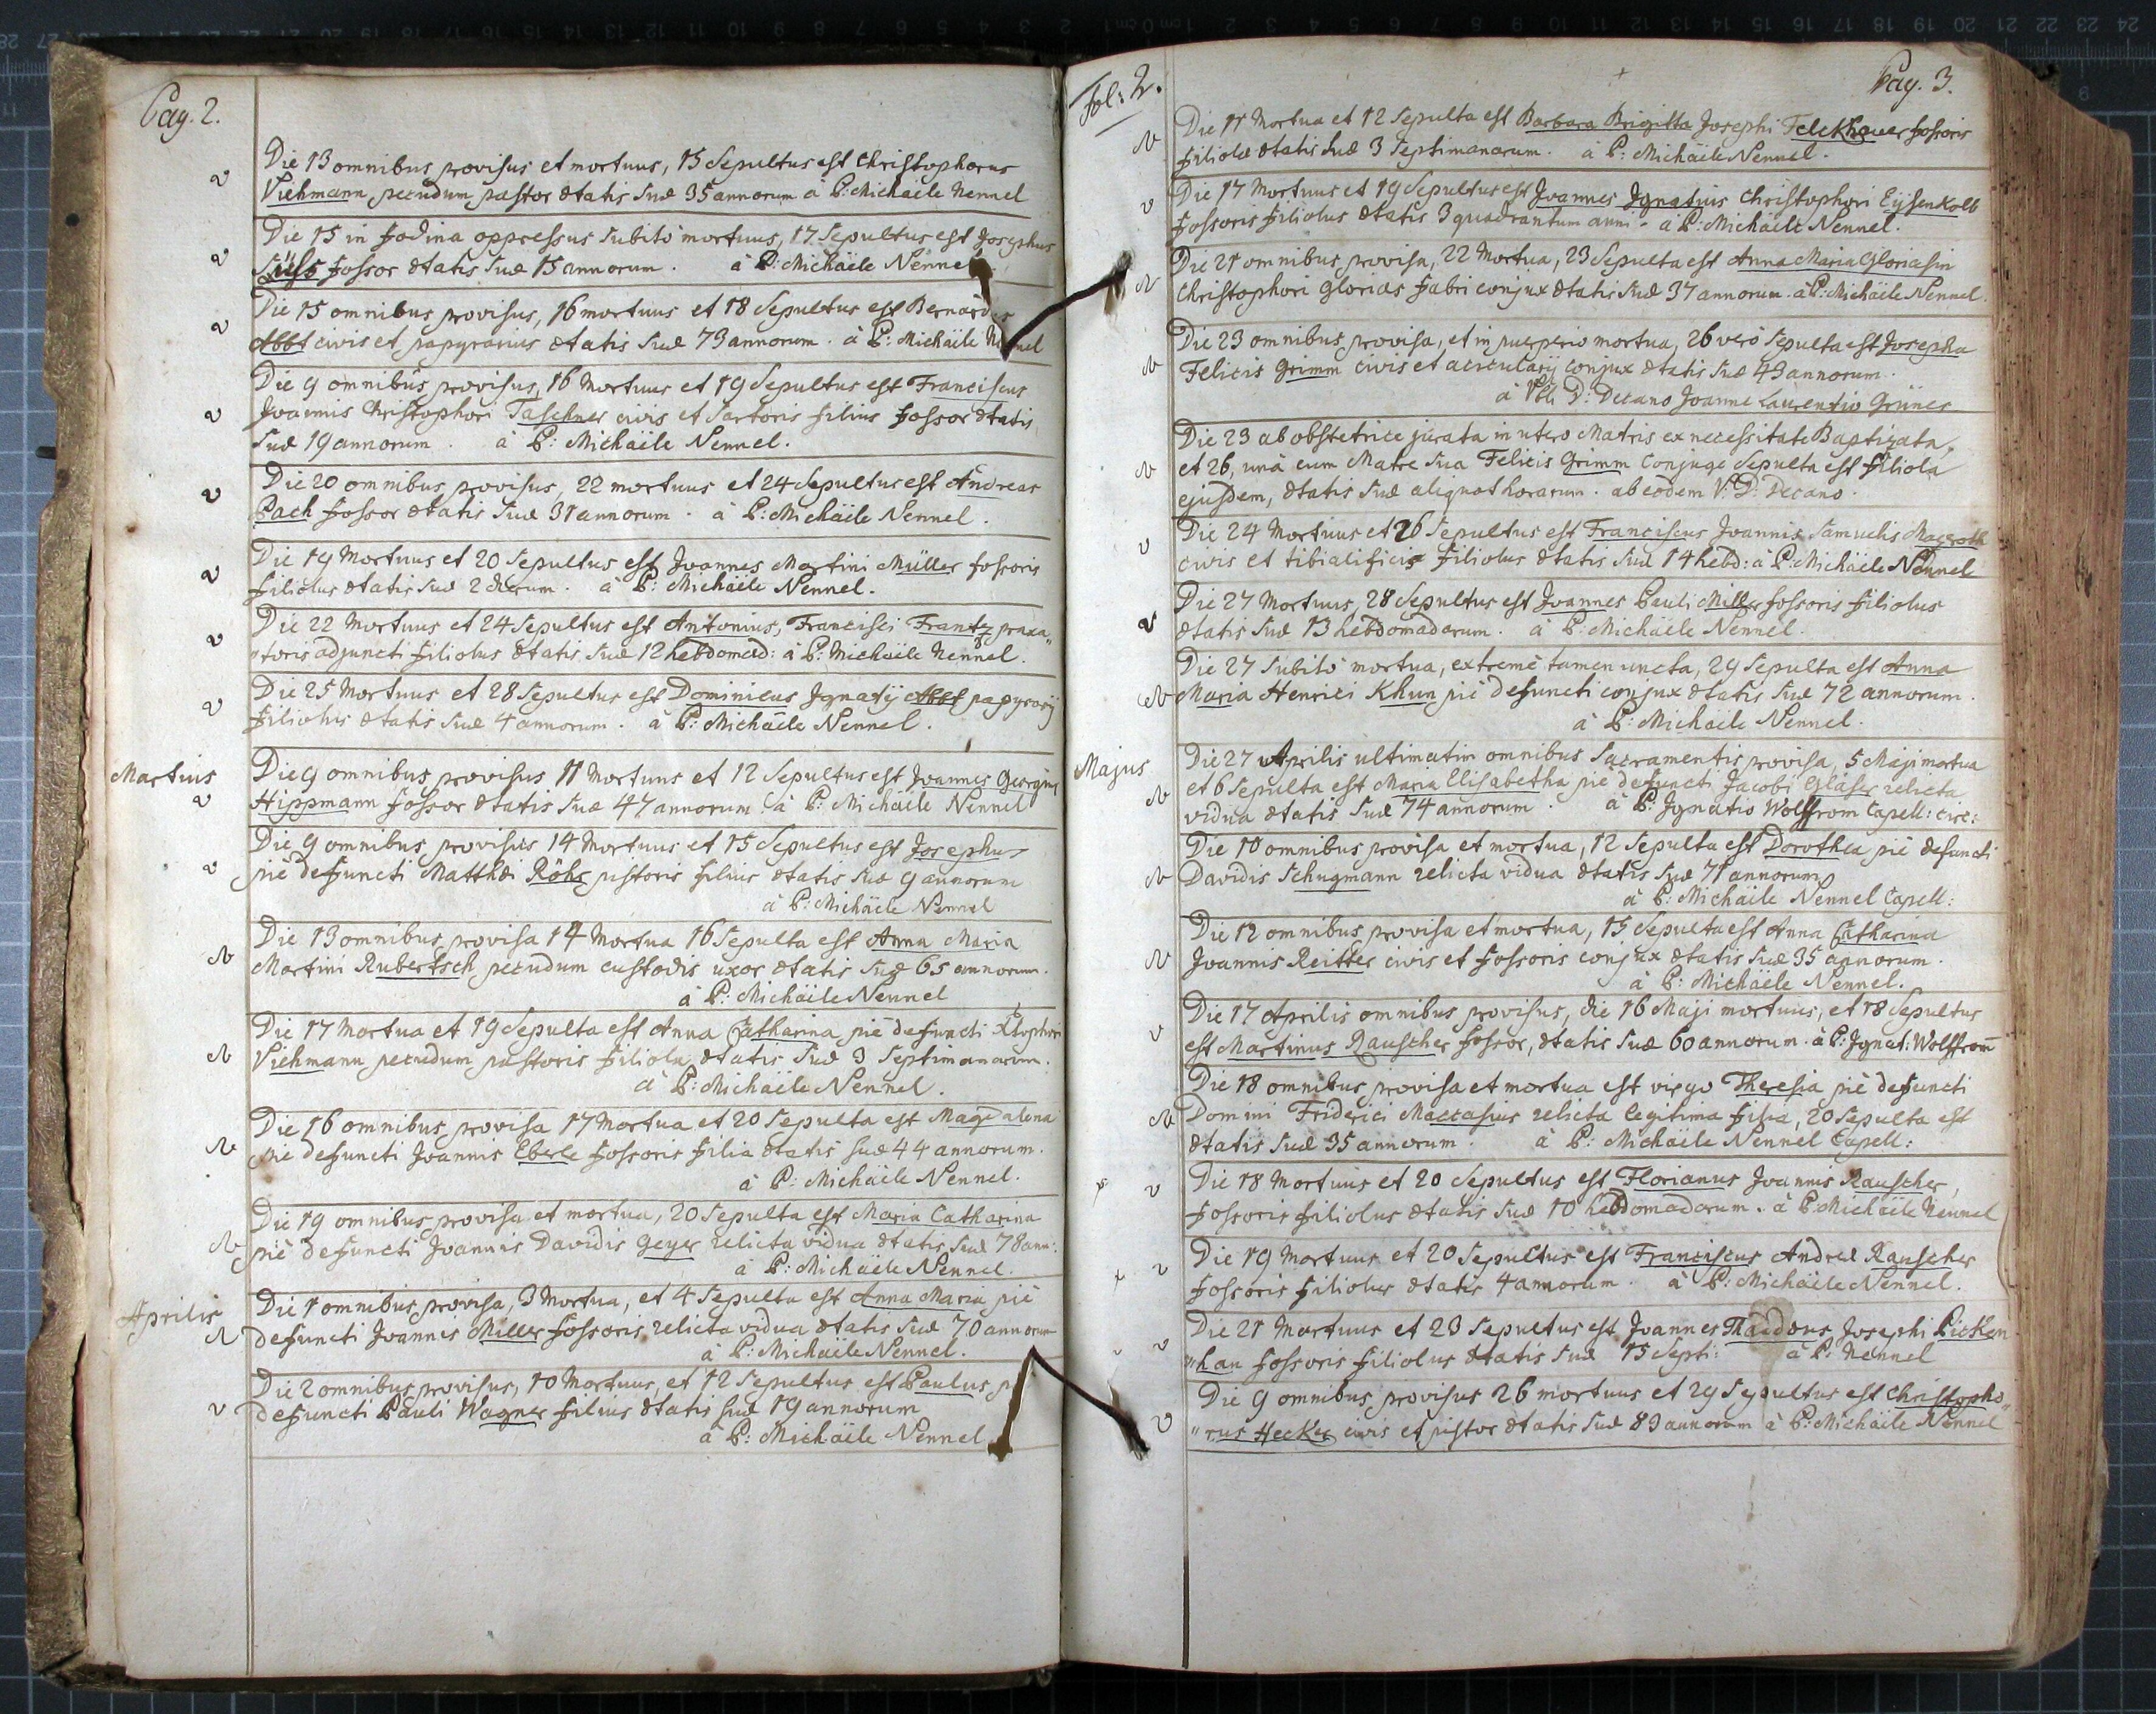 Pag. 2.
Die 13 omnibus provisus et mortuus, 15 Sepultus est Christophorus
Viehmann pecudum pastor ætatis suæ 35 annorum à P: Michaële Nennel
Die 15 in fodina oppressus subitò mortuus, 17. Sepultus est Josephus
fossor ætatis suæ 15 annorum. à P: Michäele Nennel
Die 15 omnibus provisus, 16 mortuus et 18 Sepultus est Bernardus
Abbt civis et papyrarius ætatis suæ 73 annorum. à P: Michäele Nennel
Die 9 omnibus provisus, 16 Mortuus et 19 Sepultus est Franciscus
Joannis Christophori Taschner civis et Sartoris filius fossor ætatis
suæ 19 annorum. à P: Michäele Nennel.
Die 20 omnibus provisus, 22 mortuus et 24 Sepultus est Andreas
Bach fossor ætatis suæ 31 annorum. à P: Michäele Nennel.
Die 19 Mortuus et 20 Sepultus est Joannes Martini Müller fossoris
filiolus ætatis suæ 2 dierum. à P: Michäele Nennel.
Die 22 Mortuus et 24 Sepultus est Antonius, Francisci Frantz praxa„
„toris adjuncti filiolus ætatis suæ 12 hebdomad: à P: Michäele Nennel.
Die 25 Mortuus et 28 Sepultus est Dominicus Ignatij Abbt papyrarij
filiolus ætatis suæ 4 annorum. à P: Michäele Nennel.
Martius
Die 9 omnibus provisus 11 Mortuus et 12 Sepultus est Joannes Georgius
Hippmann fossor ætatis suæ 47 annorum. à P: Michäele Nennel
Die 9 omnibus provisus 14 Mortuus et 15 Sepultus est Josephus
piè defuncti Matthæi Röhr pistoris filius ætatis suæ 9 annorum
à P: Michäele Nennel
Die 13 omnibus provisa 14 Mortua 16 Sepulta est Anna Maria
Martini Rubertsch pecudum custodis uxor ætatis suæ 65 annorum.
à P: Michäele Nennel
Die 17 Mortua et 19 Sepulta est Anna Catharina piè defuncti Xtophori
Viehmann pecudum pastoris filiola ætatis suæ 3 Septimanarum.
à P: Michäele Nennel.
Die 16 omnibus provisa 17 Mortua et 20 Sepulta est Magdalena
piè defuncti Joannis Eberle fossoris filia ætatis suæ 44 annorum.
à P: Michäele Nennel.
Die 19 omnibus provisa et mortua, 20 Sepulta est Maria Catharina
piè defuncti Joannis Davidis Geyer relicta vidua ætatis suæ 78 ann:
à P: Michäele Nennel.
Aprilis
Die 1 omnibus provisa, 3 Mortua, et 4 Sepulta est Anna Maria piè
defuncti Joannis Miller fossoris relicta vidua ætatis suæ 70 annorum
à P: Michaele Nennel.
Die 2 omnibus provisus, 10 Mortuus, et 12 Sepultus est Paulus
defuncti Pauli Wagner filius ætatis suæ 19 annorum
à P: Michäele Nennel
Fol: 2.
Pag. 3.
Die 11 Mortua et 12 Sepulta est Barbara Brigitta Josephi Felckhauer fossoris
filiola ætatis suæ 3 Septimanarum. à P: Michäele Nennel.
Die 17 Mortuus et 19 Sepultus est Joannes Ignatius Christophori Eysenkolb
fossoris filiolus ætatis 3 quadrantum anni. à P: Michäele Nennel.
Die 21 omnibus provisa, 22 Mortua, 23 Sepulta est Anna Maria Gloriasin
Christophori Glorias fabri conjux ætatis suæ 37 annorum. à P: Michäele Nennel.
Die 23 omnibus provisa, et in puerperio mortua, 26 verò Sepulta est Josepha
Felicis Grimm civis et acicularij conjux ætatis suæ 43 annorum.
à D: Decano Joanne Laurentio Grüner
Die 23 ab obstetrice jurata in utero Matris ex necessitate Baptizata,
et 26, unà cum Matre sua Felicis Grimm Conjuge Sepulta est filiola
ejusdem, ætatis suæ aliquot horarum. ab eodem V: D: Decano.
Die 24 Mortuus et 26 Sepultus est Franciscus Joannis Samuelis Macroth
civis et tibialificis filiolus ætatis suæ 14 hebd: à P: Michäele Nennel
Die 27 Mortuus, 28 Sepultus est Joannes Pauli Miller fossoris filiolus
ætatis suæ 13 hebdomadarum. à P: Michäele Nennel.
Die 27 subitò mortua, extremè tamen uncta, 29 Sepulta est Anna
Maria Henrici Khun piè defuncti conjux ætatis suæ 72 annorum.
à P: Michäele Nennel.
Majus
Die 27 Aprilis ultimatim omnibus Sacramentis provisa, 5 Maji mortua
et 6 Sepulta est Maria Elisabetha piè defuncti Jacobi Gläser relicta
vidua ætatis suæ 74 annorum. à P: Ignatio Wolffrom Capell: circ:
Die 10 omnibus provisa et mortua, 12 Sepulta est Dorothea piè defuncti
Davidis Schugmann relicta vidua ætatis suæ 71 annorum
à P: Michäele Nennel Capell:
Die 12 omnibus provisa et mortua, 15 Sepulta est Anna Catharina
Joannis Reitter civis et fossoris conjux ætatis suæ 35 annorum.
à P: Michäele Nennel.
Die 17 Aprilis omnibus provisus, die 16 Maji mortuus, et 18 Sepultus
est Martinus Rauscher fossor, ætatis suæ 60 annorum. à P: Ignat: Wolffrom
Die 18 omnibus provisa et mortua est virgo Theresia piè defuncti
Domini Friderici Maccasius relicta legitima filia, 20 Sepulta est
ætatis suæ 35 annorum. à P: Michäele Nennel Capell:
Die 18 Mortuus et 20 Sepultus est Florianus Joannis Rauscher
fossoris filiolus ætatis suæ 10 hebdomadarum. à P: Michäele Nennel
Die 19 Mortuus et 20 Sepultus est Franciscus Andreæ Rauscher
fossoris filiolus ætatis 4 annorum. à P: Michäele Nennel.
Die 21 Mortuus et 23 Sepultus est Joannes Josephi Picken
„han fossoris filiolus ætatis suæ 15 Septi: à P: Nennel
Die 9 omnibus provisus 26 mortuus et 29 Sepultus est Christopho„
„rus Hecker civis et pistor ætatis suæ 83 annorum à P: Michäele Nennel